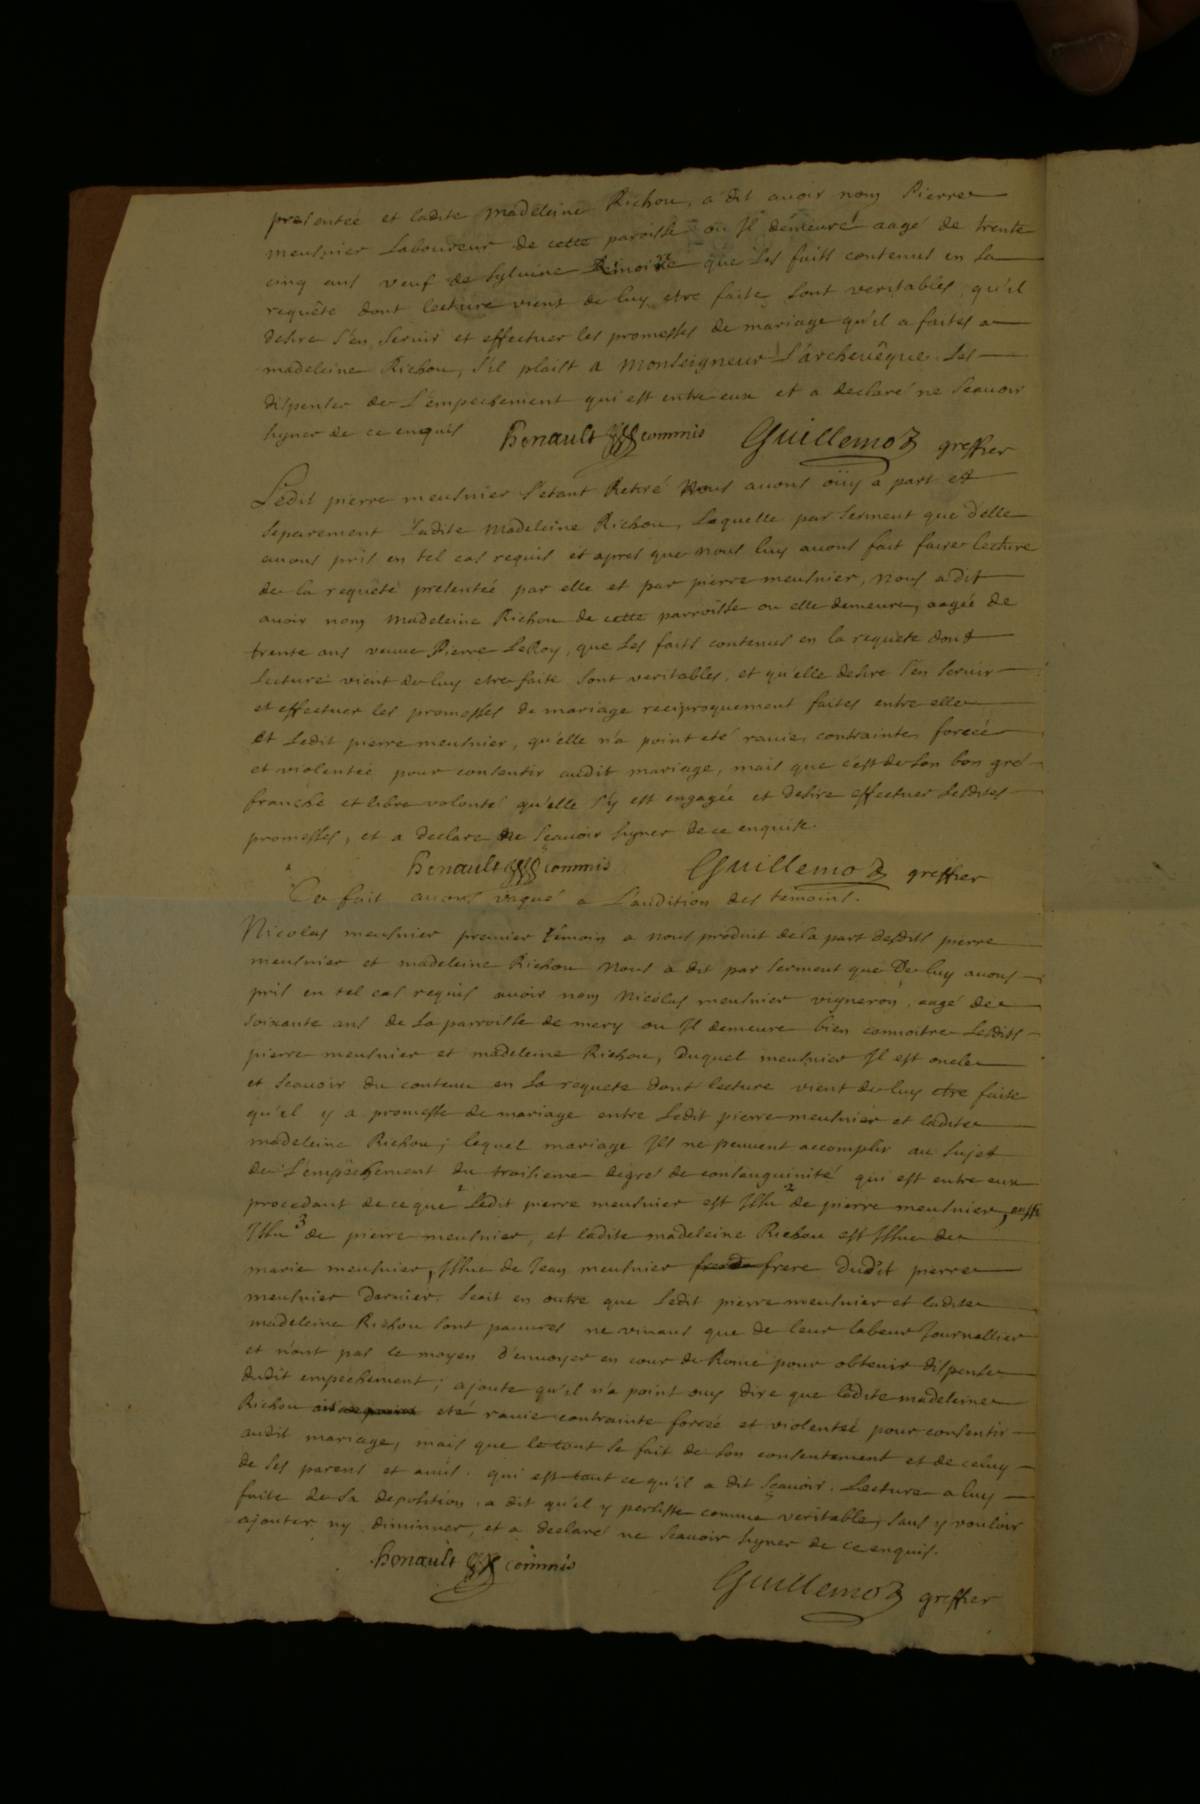 presentée et ladite Madeleine Richou, a dit avoir nom Pierre
meusnier Laboureur de cette paroisse ou Il demeure aagé de trente
cinq ans veuf de Sylvine que les faits contenus en la
requête dont lecture vient de luy etre faite sont veritables, qu'il
desire s'en servir et effectuer les promesses de mariage qu'il a faites a
madeleine Richou, s'il plaist a Monseigneur L'archevêque les
dispenser de L'empechement qui est entre eux et a declaré ne scavoir
signer de ce enquis henault commis Guillemoz greffier
Ledit pierre meusnier s'etant Retiré Nous avons oüy a part et
separement Ladite Madeleine Richou, Laquelle par serment que d'elle
avons pris en tel cas requis et apres que nous luy avons fait faire lecture
de la requête presentée par elle et par pierre meusnier, Nous a dit
avoir nom Madeleine Richou de cette parroisse ou elle demeure, aagée de
trente ans veuve Pierre LeRoy, que les faits contenus en la requete dont
Lecture vient de luy etre faite sont veritables, et qu'elle desire s'en servir
et effectuer les promesses de mariage reciproquement faites entre elle
et Ledit pierre meusnier, qu'elle n'a point eté ravie, contrainte, forcée
et violentée pour consentir audit mariage, mais que c'est de son bon gré
franche et libre volonté qu'elle s'y est engagée et desire effectuer lesdites
promesses, et a declaré ne sçavoir signer de ce enquise.
henault commis Guillemoz greffier
Ce fait avons vaqué a L'audition des temoins.
Nicolas meusnier premier temoin a nous produit de la part desdits pierre
meusnier et madeleine Richou Nous a dit par serment que De luy avons
pris en tel cas requis avoir nom Nicolas meusnier vigneron, aagé de
soixante ans de la parroisse de mery ou Il demeure bien connoitre Lesdits
pierre meusnier et madeleine Richou, Duquel meusnier Il est oncle
et scavoir du contenu en la requete dont lecture vient de luy etre faite
qu'il y a promesse de mariage entre Ledit pierre meusnier et ladite
madeleine Richou, lequel mariage Ils ne peuvent accomplir au sujet
de L'empêchement du troisieme degré de consanguinité qui est entre eux
procedant de ce que Ledit pierre meusnier est Issu 2 de pierre meusnier,
Issu 3 de pierre meusnier, et ladite madeleine Richou est Issue de
marie meusnier, Issue de Jean meusnier frere Dudit pierre
meusnier Dernier. Scait en outre que Ledit pierre meusnier et ladite
madeleine Richou sont pauvres ne vivans que de leur labeur Journallier
et n'ont pas le moyen d'envoyer en cour de Rome pour obtenir dispense
dudit empechement; ajoute qu'il n'a point ouy dire que ladite madeleine
Richou eté ravie contrainte forcée et violentée pour consentir
audit mariage, mais que le tout se fait de son consentement et de celuy
de ses parens et amis. qui est tout ce qu'il a dit sçavoir. Lecture a luy
faite de sa deposition, a dit qu'il y persiste comme veritable, sans y vouloir
ajouter ny diminuer, et a declaré ne scavoir signer de ce enquis.
henault commis
Guillemoz greffier